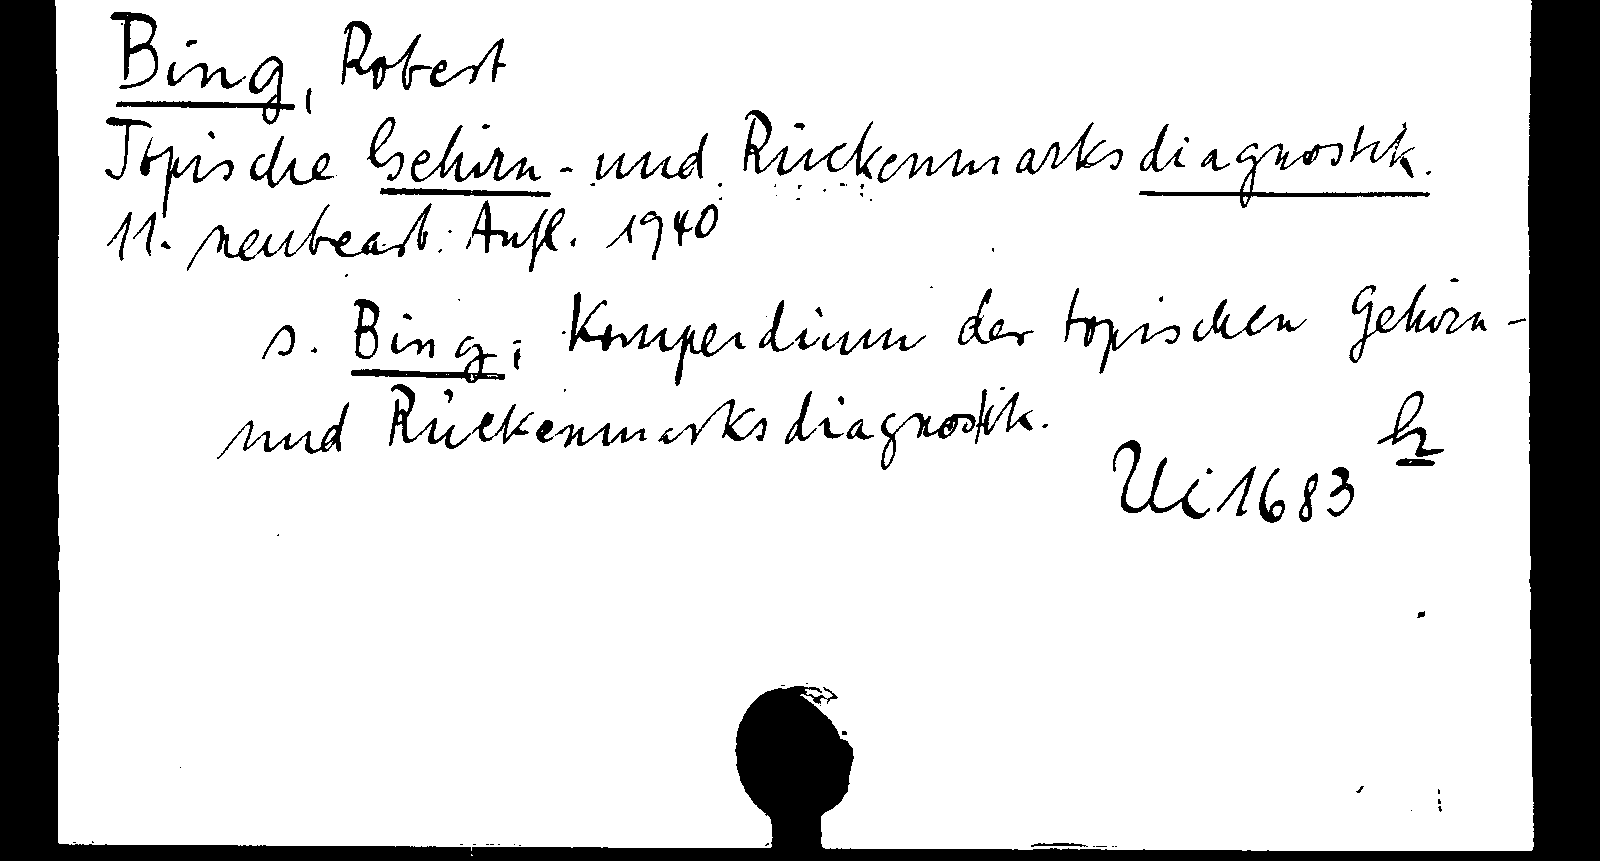 Bing, Robert
Topische Gehirn- und Rückenmarksdiagnostik.
11. neubearb. Aufl. 1940
s. Bing, Kompendium der topischen Gehirn-
und Rückenmarksdiagnostik.
h
Ui 1683